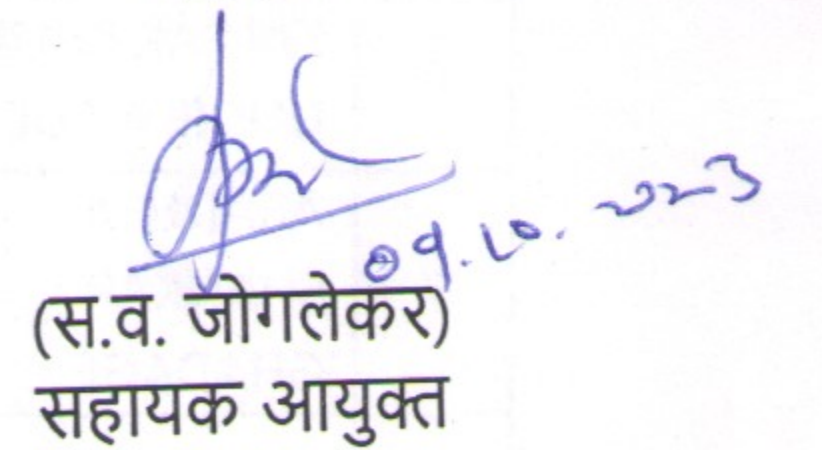 09.10.2023
(स.व. जोगलेकर)
सहायक आयुक्त